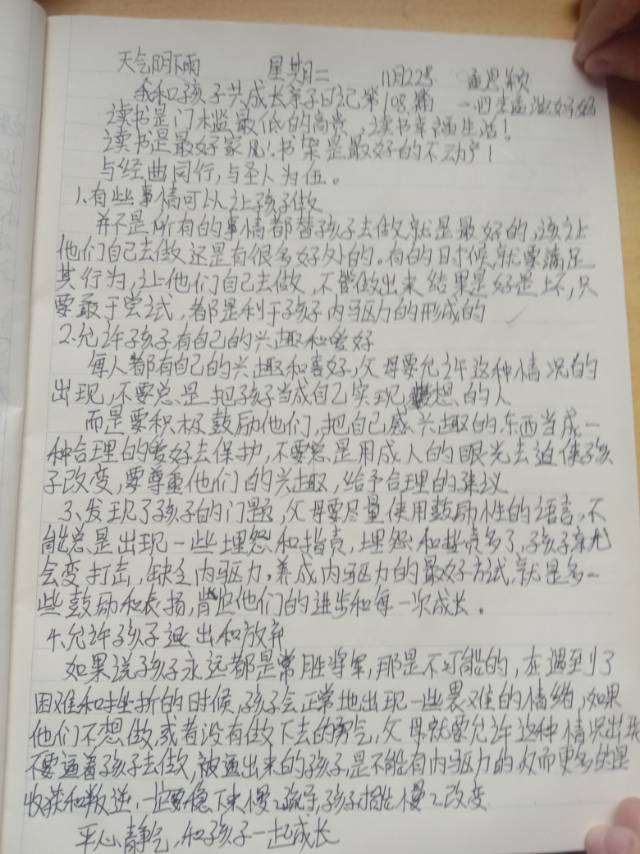 天气阴下雨 星期二 11月22号 孟思颖
我和孩子共成长亲子日记第108篇 一切幸运
读书是门槛最低的高贵,读书幸福生活!
读书是最好家风!书架是最好的不动产!
与经典同行,与圣人为伍。
1.有些事情可以让孩子做
并不是所有的事情都替孩子去做就是最好的,该让
他们自己去做还是有很多好处的。有的时候就要满足
其行为,让他们自己去做,不管做出来结果是好是坏,只
要敢于尝试,都是利于孩子内驱力的形成的
2.允许孩子有自己的兴趣和爱好
每人都有自己的兴趣和喜好,父母要允许这种情况的
出现,不要总是把孩子当成自己实现 想的人
而是要积极鼓励他们,把自己感兴趣的东西当成一
种合理的爱好去保护,不要总是用成人的眼光去迫使孩
子改变,要尊重他们的兴趣,给予合理的建议
3.发现了孩子的门题,父母要尽量使用鼓励性的语言,不
能总是出现一些埋怨和指责,埋怨和指责多了,孩子
会变打击,缺乏内驱力,养成内驱力的最好方试,就是多一
些鼓励和表扬,肯定他们的进步和每一次成长。
4.允许孩子退出和放弃
如果说孩子永远都是常胜将军,那是不可能的,在遇到了
困难和挫折的时候,孩子会正常地出现一些畏难的情绪,如果
他们不想做,或者没有做下去的勇气,父母就要允许这种情况出现
不要逼着孩子去做,被逼出来的孩子,是不能有内驱力的,反而更多的是
收获和叛逆,一定要稳下来慢慢疏导,孩子才能慢慢改变
平心静气,和孩子一起成长